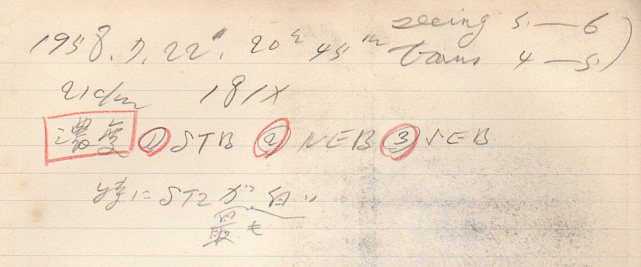 1958. 7. 22ᵈ. 20ʰ 45ᵐ seeing 5 — 6)
trans 4 — 5)
21cm 181X
濃度 ① STB ② NEB ③ SEB
特に STZ が 白い
最も